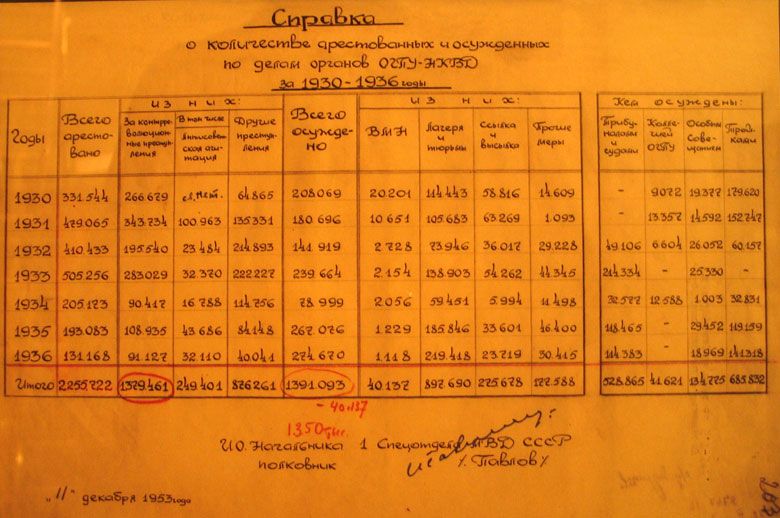 Справка
о количестве арестованных и осужденных
по делам органов ОГПУ-НКВД
за 1930-1936 годы
Годы Всего арестовано Из них: За контрреволюционные преступления В том числе Антисоветская агитация Другие преступления Всего осуждено Из них: ВМН Лагеря и тюрьмы Ссылка и высылка Прочие меры Кем осуждены: Трибуналами и судами Коллегией ОГПУ Особым Совещанием Тройками
1930 331.544 266.679 св. нет. 64.865 208.069 20.201 114.443 58.816 14.609 - 9.072 19.377 179.620
1931 479.065 343.734 100.963 135.331 180.696 10.651 105.683 63.269 1.093 - 13.357 14.592 152.747
1932 410.433 195.540 23.484 214.893 141.919 2.728 73.946 36.017 29.228 49.106 6.604 26.052 60.157
1933 505.256 283.029 32.370 222.227 239.664 2.154 138.903 54.262 44.345 214.334 - 25.330 -
1934 205.173 90.417 16.788 114.756 78.999 2.056 59.451 5.994 11.498 32.577 12.588 1.003 32.831
1935 193.083 108.935 43.686 84.148 267.076 1.229 185.846 33.601 46.400 118.465 - 29.452 119.159
1936 131.168 91.127 32.110 40.041 274.670 1.118 219.418 23.719 30.415 114.383 - 18.969 141.318
Итого 2255.722 1379.461 249.401 876.261 1391.093 40.137 897.690 275.678 177.588 528.865 41.621 134.775 685.832
- 40.137
1350 тыс.
И.О. Начальника 1 Спецотдела МВД СССР
полковник /Павлов/
„11" декабря 1953 года